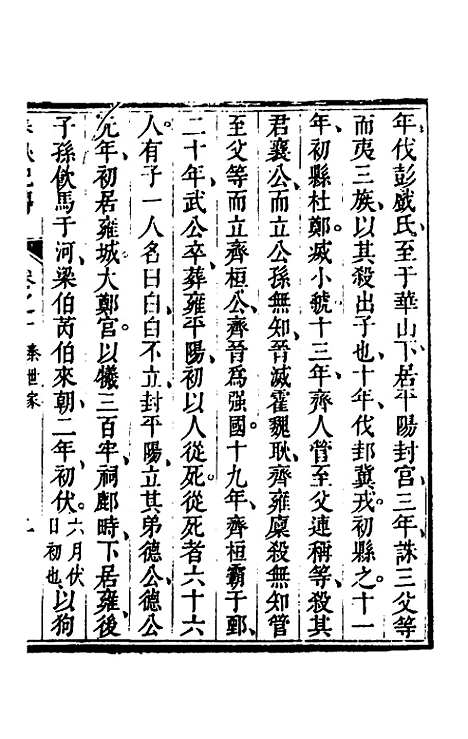 年伐彭戲氏至于華山下居平陽封宮三年誅三父等
而夷三族以其殺出子也十年伐邽冀戎初縣之十一
年初縣杜鄭滅小虢十三年齊人管至父連稱等殺其
君襄公而立公孫無知晉滅霍魏耿齊雍廩殺無知管
至父等而立齊桓公齊晉為强國十九年齊桓霸于鄄
二十年武公卒葬雍平陽初以人從死從死者六十六
人有子一人名曰白白不立封平陽立其弟德公德公
元年初居雍城大鄭宮以犧三百牢祠鄜畤下居雍後
子孫飲馬于河梁伯芮伯來朝二年初伏六月伏日初也以狗
秦世家